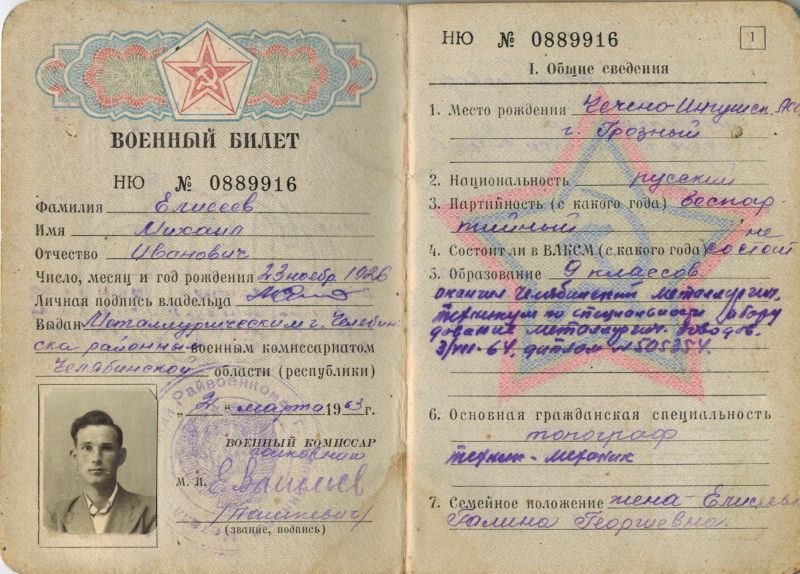 ВОЕННЫЙ БИЛЕТ
НЮ № 0889916
Фамилия Елисеев
Имя Михаил
Отчество Иванович
Число, месяц и год рождения 23 ноябр 1926
Личная подпись владельца
Выдан Металлургическим г. Челябин-
ска районным военным комиссариатом
Челябинской области (республики)
„2“ марта 1963 г.
ВОЕННЫЙ КОМИССАР
полковник
М. П.
(звание, подпись)
НЮ № 0889916
1
I. Общие сведения
1. Место рождения Чечено-Ингушск.
г. Грозный
2. Национальность русский
3. Партийность (с какого года) беспар-
тийный
4. Состоит ли в ВЛКСМ (с какого года) не
состоит
5. Образование 9 классов
окончил Челябинский металлургич.
техникум по специальности обору
дование металлургич. заводов.
3/VII-64. диплом № 505354.
6. Основная гражданская специальность
топограф
техник-механик
7. Семейное положение жена - Елисеева
Галина Георгиевна